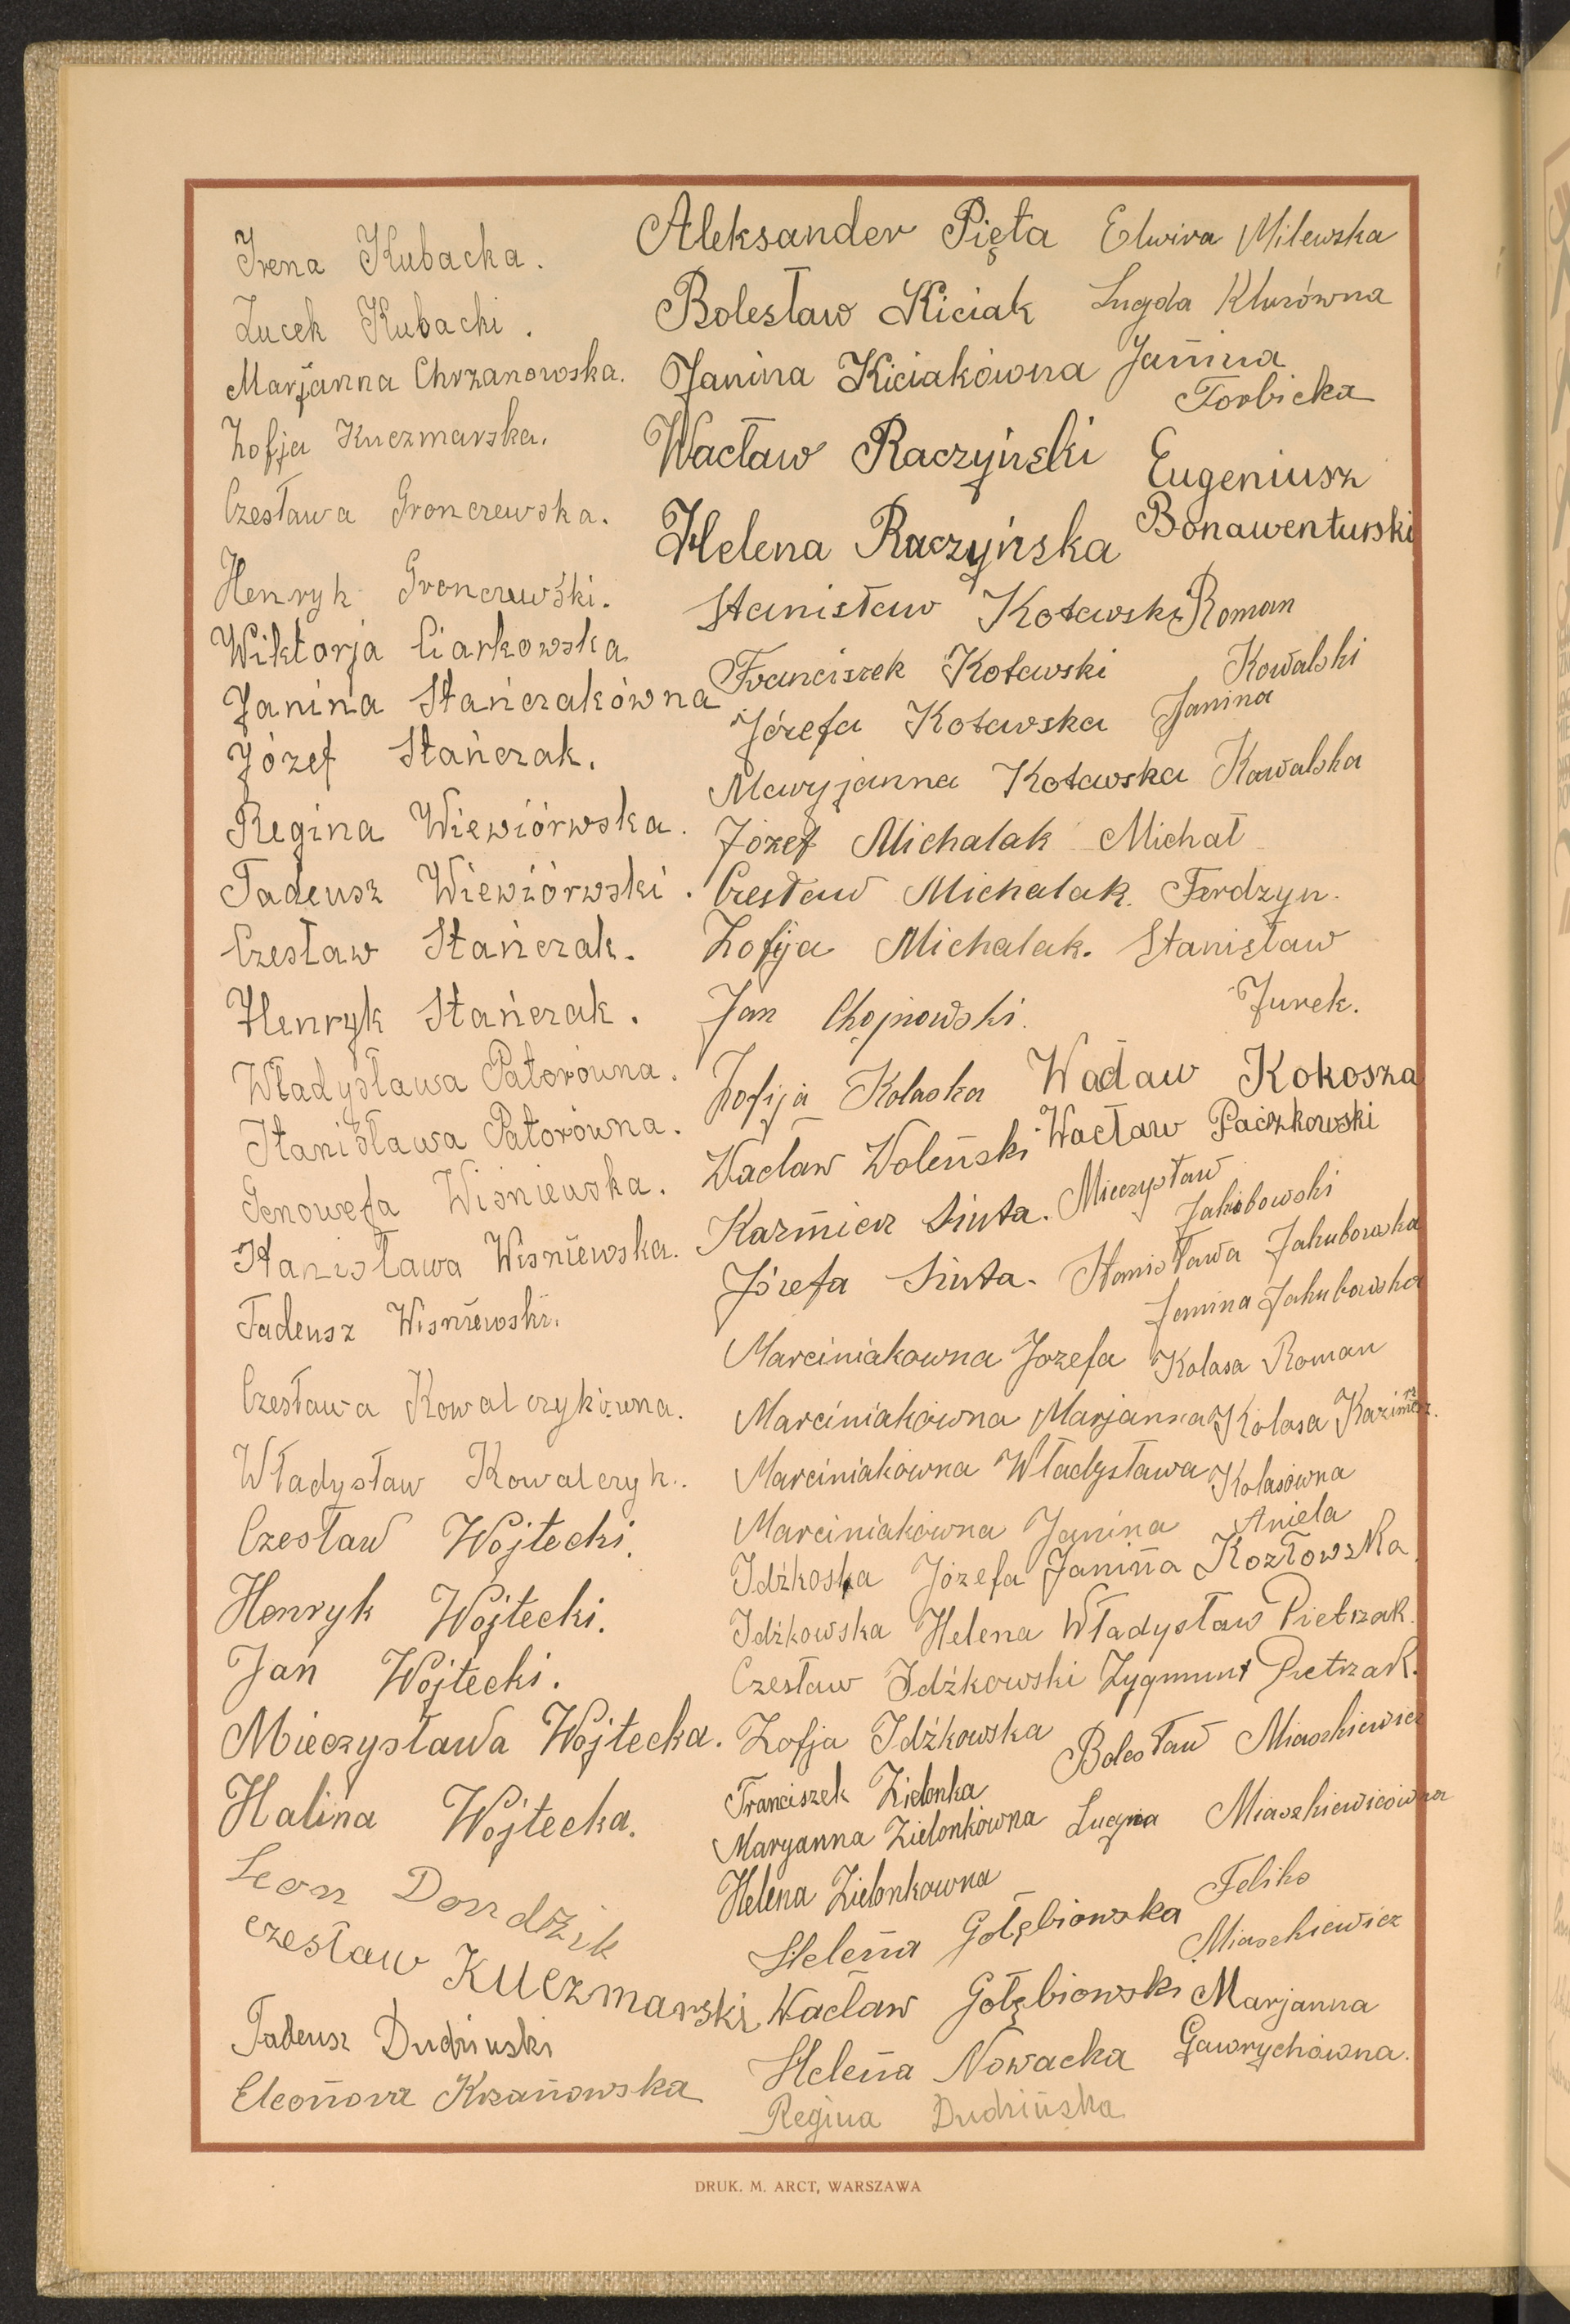 Irena Kubacka.
Lucek Kubacki.
Marjanna Chrzanowska.
Zofja Kuczmarska.
Czesława Gronczewska.
Henryk Gronczewski.
Wiktorja Ciarkowska
Janina Stańczakówna
Józef Stańczak.
Regina Wiewiórwska.
Tadeusz Wiewiórwski.
Czesław Stańczak.
Henryk Stańczak.
Władysława Patorówna.
Stanisława Patorówna.
Genowefa Wiśniewska.
Stanisława Wiśniewska.
Tadeusz Wiśniewski.
Czesława Kowalczykówna.
Władysław Kowalczyk.
Czesław Wojtecki.
Henryk Wojtecki.
Jan Wojtecki.
Mieczysława Wojtecka.
Halina Wojtecka.
Leon Dondzik
czesław Kuczmarski
Tadeusz Dudziński
Eleonora Krzanowska
Aleksander Pięta
Bolesław Kiciak
Janina Kiciakówna
Wacław Raczyński
Helena Raczyńska
Stanisław Kotawski
Franciszek Kotawski
Józefa Kotawska
Maryjanna Kotawska
Józef Michalak
Czesław Michalak.
Zofija Michalak.
Jan Chojnowski.
Zofija Kolaska
Wacław Woleński
Kaźmierz Siuta.
Józefa Siuta.
Marciniakowna Jozefa
Marciniakówna Marjanna
Marciniakówna Władysława
Marciniakówna Janina
Idźkoska Józefa
Idźkowska Helena
Czesław Idźkowski
Zofja Idźkowska
Franciszek Zielonka
Maryanna Zielonkówna
Helena Zielonkowna
Helena Gołębiowska
Wacław Gołębiowski
Helena Nowacka
Regina Dudzińska
Elwira Milewska
Klusówna
Janina
Torbicka
Eugeniusz
Bonawenturski
Roman
Kowalski
Janina
Kowalska
Michał
Ferdzyn.
Stanisław
Jurek.
Wacław Kokosza
Wacław Paczkowski
Mieczysław
Jakubowski
Stanisława Jakubowska
Janina Jakubowska
Kolasa Roman
Kolasa Kazimierz.
Kolasówna
Aniela
Janina Kozłowska
Władysław Pietrzak.
Zygmunt Pietrzak.
Bolesław Miaszkiewicz
Lucyna Miaszkiewiczówna
Feliks
Miaszkiewicz
Marjanna
Gawrychówna.
DRUK. M. ARCT, WARSZAWA